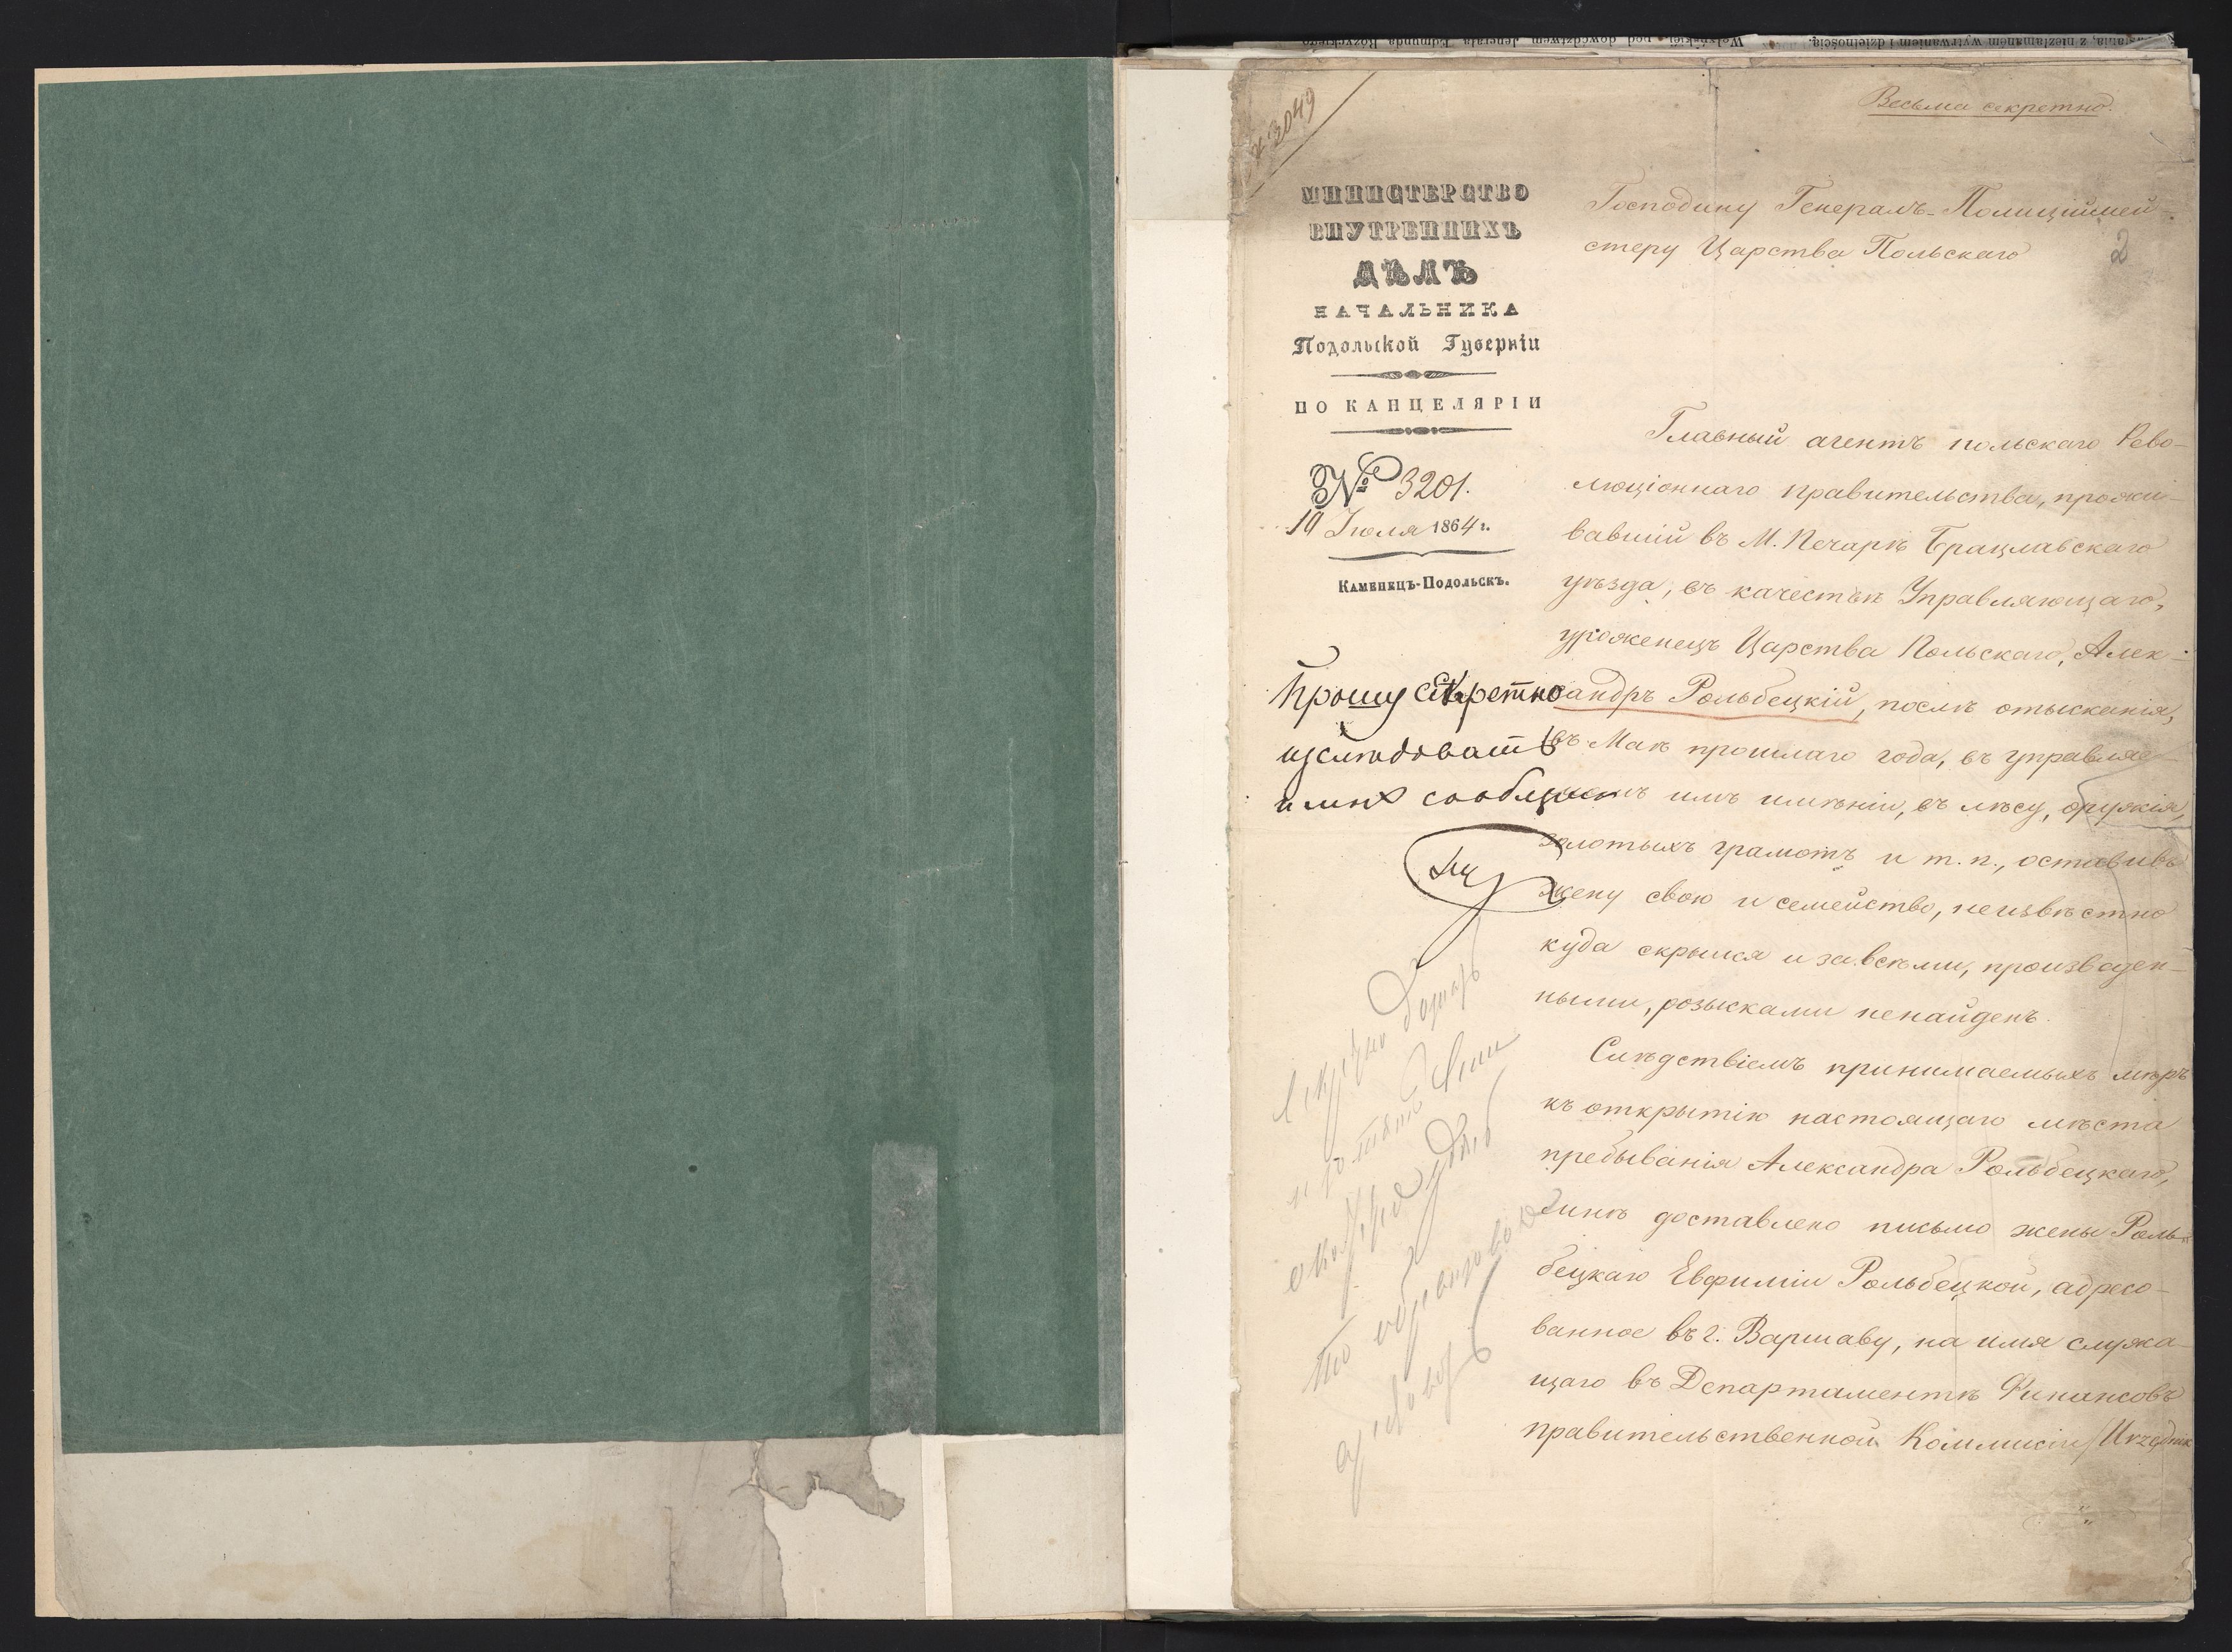 Весьма секретно.
№ 3049
МИНИСТЕРСТВО
ВНУТРЕННИХЪ
ДѢЛЪ
НАЧАЛЬНИКА
Подольской Губерніи
ПО КАНЦЕЛЯРІИ
№ 3201.
10 Іюля 1864 г.
Каменецъ-Подольскъ.
Господину Генералъ-Полиціймей-
стеру Царства Польскаго
2
Главный агентъ польскаго Рево-
люціоннаго правительства, прожи-
вавшій въ М. Печарѣ Брацлавскаго
уѣзда, въ качествѣ Управляющаго,
уроженецъ Царства Польскаго, Алек-
сандръ Рольбецкій, послѣ отысканія,
въ Маѣ прошлаго года, въ управляе-
момъ имъ имѣніи, въ лѣсу, оружія,
золотыхъ грамотъ и т. п., оставивъ
жену свою и семейство, неизвѣстно
куда скрылся и за всѣми, произведен-
ными, розысками ненайденъ.
Слѣдствіемъ принимаемыхъ мѣръ
къ открытію настоящаго мѣста
пребыванія Александра Рольбецкаго,
мнѣ доставлено письмо жены Роль-
бецкаго Евфиміи Рольбецкой, адресо-
ванное въ г. Варшаву, на имя служа-
щаго въ Департаментѣ Финансовъ
правительственной Коммисіи /Urzędnik
Прошу секретно
изслѣдовать
и мнѣ сообщить